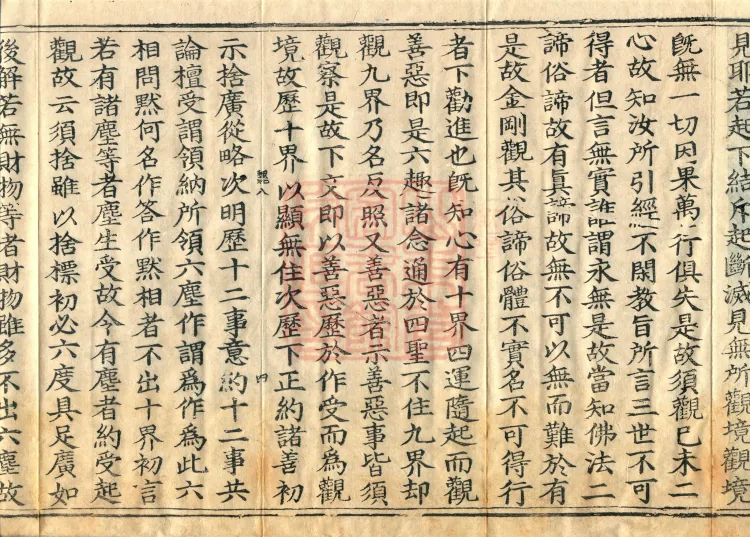 見耶若起下結斥起斷滅見無所觀境觀境
旣無一切因果萬行俱失是故須觀已未二
心故知汝所引經不閑教旨所言三世不可
得者但言無實誰謂永無是故當知佛法二
諦俗諦故有真諦故無不可以無而難於有
是故金剛觀其俗諦俗體不實名不可得行
者下勸進也旣知心有十界四運隨起而觀
善惡即是六趣諸念通於四聖不住九界却
觀九界乃名反照又善惡者示善惡事皆須
觀察是故下文即以善惡歷於作受而為觀
境故歷十界以顯無住次歷下正約諸善初
八 四
示捨廣從略次明歷十二事意約十二事共
論檀受謂領納所領六塵作謂為作為此六
相問默何名作答作默相者不出十界初言
若有諸塵等者塵生受故今有塵者約受起
觀故云須捨雖以捨標初必六度具足廣如
後解若無財物等者財物雖多不出六塵故